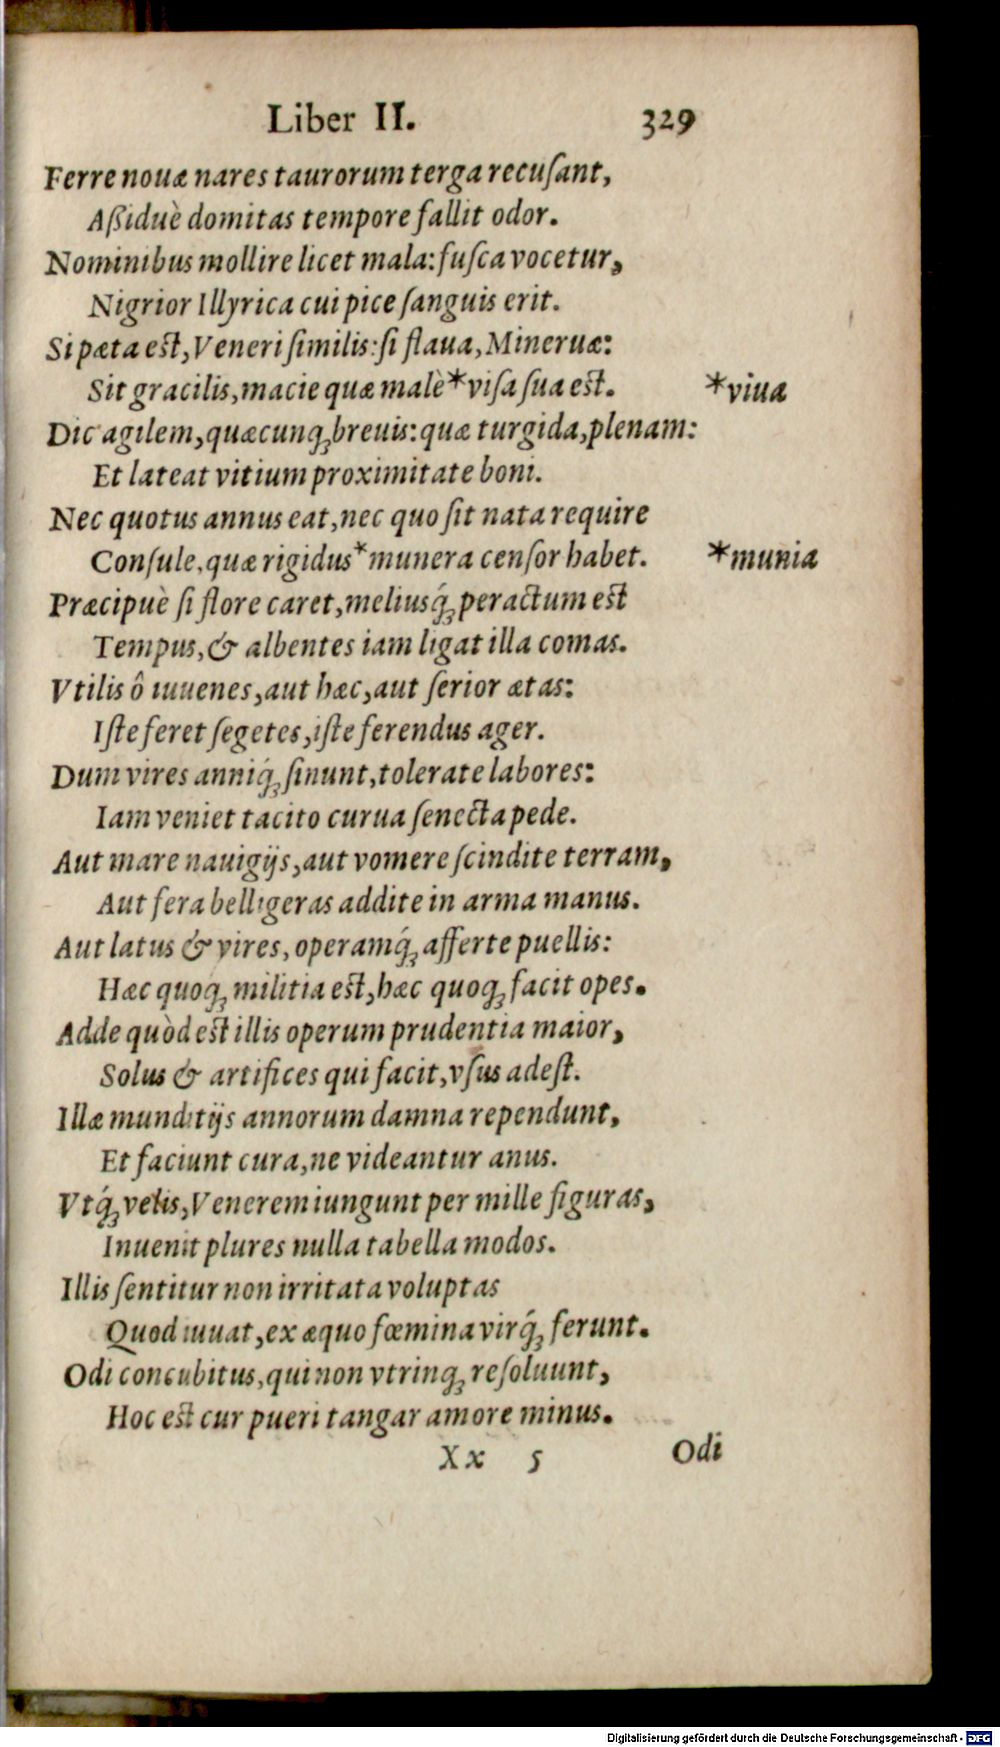 Liber II. 329
Ferre nouæ nares taurorum terga recuſant,
Aßiduè domitas tempore fallit odor.
Nominibus mollire licet mala: fuſca vocetur,
Nigrior Illyrica cui pice ſanguis erit.
Si pæta est, Veneri ſimilis: ſi flaua, Mineruæ:
Sit gracilis, macie quæ malè *viſa ſua est. *viua
Dic agilem, quæcunq; breuis: quæ turgida, plenam:
Et lateat vitium proximitate boni.
Nec quotus annus eat, nec quo ſit nata require
Conſule, quæ rigidus *munera cenſor habet. *munia
Præcipuè ſi flore caret, meliusq́; peractum est
Tempus, & albentes iam ligat illa comas.
Vtilis ô iuuenes, aut hæc, aut ſerior ætas:
Iſte feret ſegetes, iſte ferendus ager.
Dum vires anniq́; ſinunt, tolerate labores:
Iam veniet tacito curua ſenecta pede.
Aut mare nauigijs, aut vomere ſcindite terram,
Aut fera belligeras addite in arma manus.
Aut latus & vires, operamq́; afferte puellis:
Hæc quoq; militia est, hæc quoq; facit opes.
Adde quòd est illis operum prudentia maior,
Solus & artifices qui facit, vſus adeſt.
Illæ munditijs annorum damna rependunt,
Et faciunt cura, ne videantur anus.
Vtq́; velis, Venerem iungunt per mille figuras,
Inuenit plures nulla tabella modos.
Illis ſentitur non irritata voluptas
Quod iuuat, ex æquo fœmina virq́; ferunt.
Odi concubitus, qui non vtrinq; reſoluunt,
Hoc est cur pueri tangar amore minus.
Xx 5 Odi
Digitalisierung gefördert durch die Deutsche Forschungsgemeinschaft - DFG